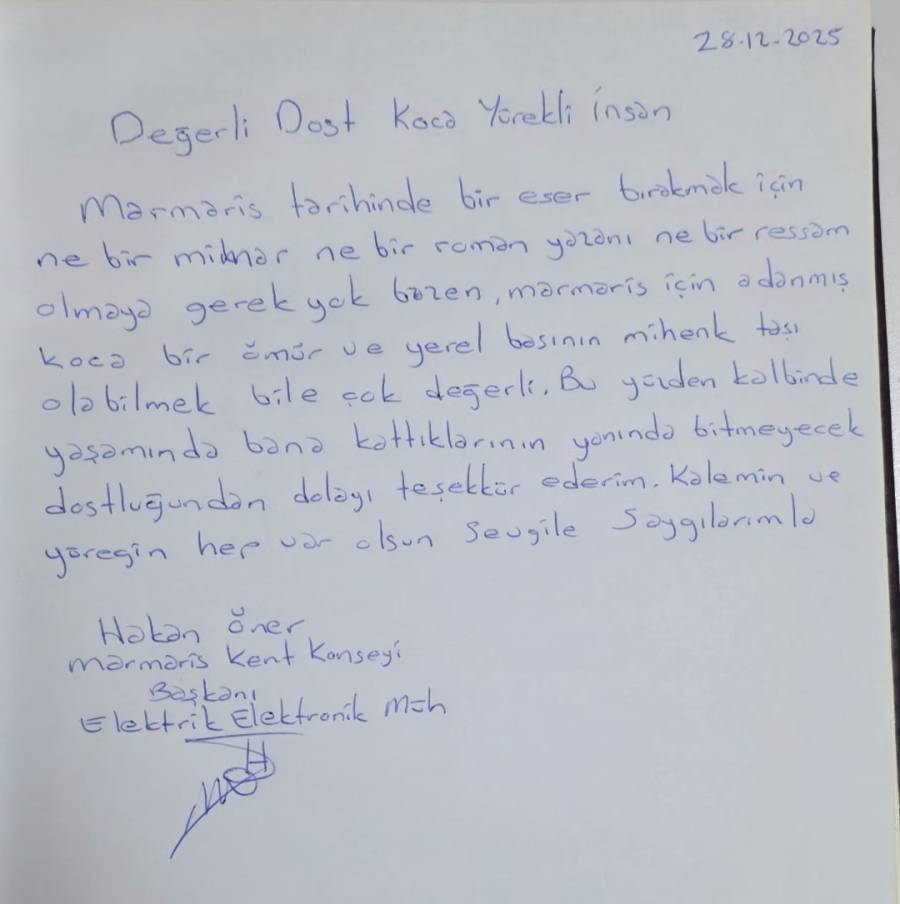 28.12.2025
Değerli Dost Koca Yürekli İnsan
Marmaris tarihinde bir eser bırakmak için
ne bir mimar ne bir roman yazanı ne bir ressam
olmaya gerek yok bazen, marmaris için adanmış
koca bir ömür ve yerel basının mihenk taşı
olabilmek bile çok değerli. Bu yüzden kalbinde
yaşamında bana kattıklarının yanında bitmeyecek
dostluğundan dolayı teşekkür ederim. Kalemin ve
yüreğin hep var olsun Sevgile Saygılarımla
Hakan Öner
Marmaris Kent Konseyi
Başkanı
Elektrik Elektronik Müh